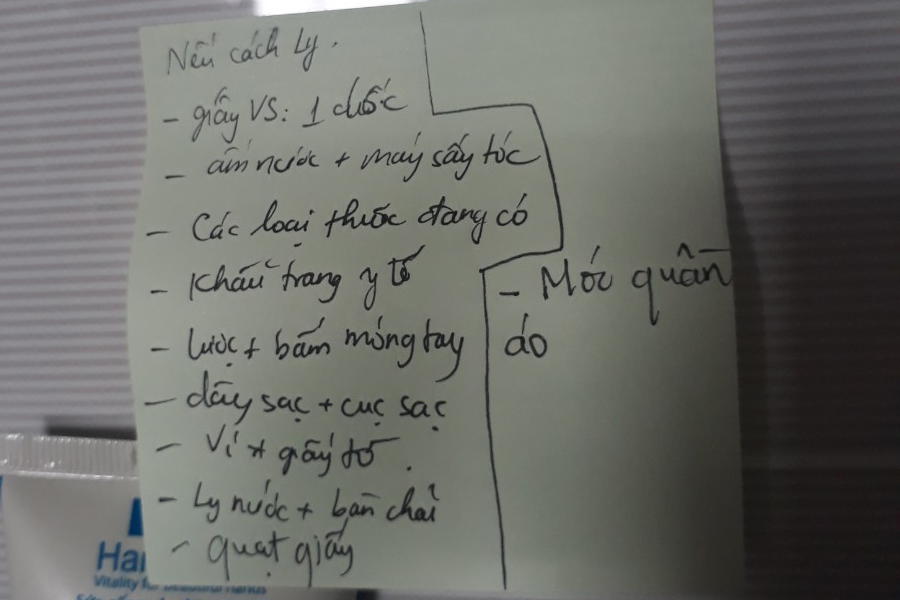 Nếu cách ly.
- giấy VS: 1 cuốc
- ấm nước + máy sấy tóc
- Các loại thuốc đang có
- Khẩu trang y tế
- lược + bấm móng tay
- dây sạc + cục sạc
- Ví + giấy tờ.
- Ly nước + bàn chải
- quạt giấy
- Móc quần
áo
Vitality for beautiful hands